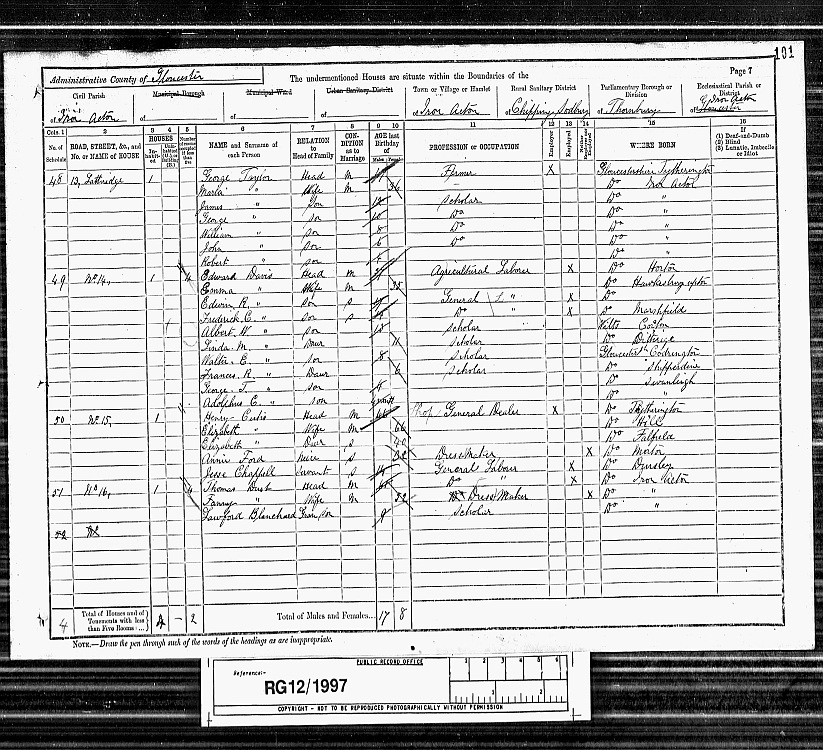 101
Administrative County of Gloucester
The undermentioned Houses are situate within the Boundaries of the
Page 7
Civil Parish
of Iron Acton
Municipal Borough
of
Municipal Ward
of
Urban Sanitary District
of
Town or Village or Hamlet
of Iron Acton
Rural Sanitary District
of Chipping Sodbury
Parliamentary Borough or Division
of Thornbury
Ecclesiastical Parish or District
of Iron Acton Gloucester
Cols. 1 2 3 4 5 6 7 8 9 10 11 12 13 14 15 16
No. of Schedule
ROAD, STREET, &c., and No. or NAME of HOUSE
HOUSES
Inhabited
Uninhabited (U.) or Building (B.)
Number of rooms occupied if less than five
NAME and Surname of each Person
RELATION to Head of Family
CONDITION as to Marriage
AGE last Birthday of
Males Females
PROFESSION or OCCUPATION
Employer
Employed
WHERE BORN
If
(1) Deaf-and-Dumb
(2) Blind
(3) Lunatic, Imbecile or Idiot
48 13, Latteridge George Taylor Head M Farmer X Gloucestershire Tytherington
Maria " Wife M 36 Do Iron Acton
James " Son 12 Scholar Do "
George " son 10 Do Do "
William " son 8 Do Do "
John " Son 6 Do Do "
Robert " son Do "
49 No 14, 1 4 Edward Davis Head M Agricultural Labourer X Do Horton
Emma " Wife M 35 Do Hawkesbury upton
Edwin R. " Son S General L " X Do
Frederick C. " Son S Do " X Do Marshfield
Albert W. " son 13 scholar Wilts
Linda M. " Daur 11 scholar Do
Walter E. " son 8 scholar Gloucester Codrington
Frances R. " Daur 6 scholar Do Shepperdine
George T. " son Do
Adolphus E. " son Do "
50 No 15, 1 Henry Curtis Head M Shop General Dealer X Do Tytherington
Elizabeth " Wife M 66 Do Hill
Elizabeth " Daur S Do Falfield
Annie Ford Neice S Dress Maker X Do Morton
Jesse Chappell Servant S General Labour X Do Dursley
51 No 16, 1 4 Thomas Head M Do " X Do Iron Acton
Fanny " Wife M 52 Dress Maker X Do "
Lawford Blanchard Gran son 9 Scholar Do "
52
4 Total of Houses and of Tenements with less than Five Rooms 4 - 2 Total of Males and Females... 17 8
NOTE.—Draw the pen through such of the words of the headings as are inappropriate.
PUBLIC RECORD OFFICE
Reference:-
RG12/1997
1 2 3 4 5 6
1 2
COPYRIGHT - NOT TO BE REPRODUCED PHOTOGRAPHICALLY WITHOUT PERMISSION